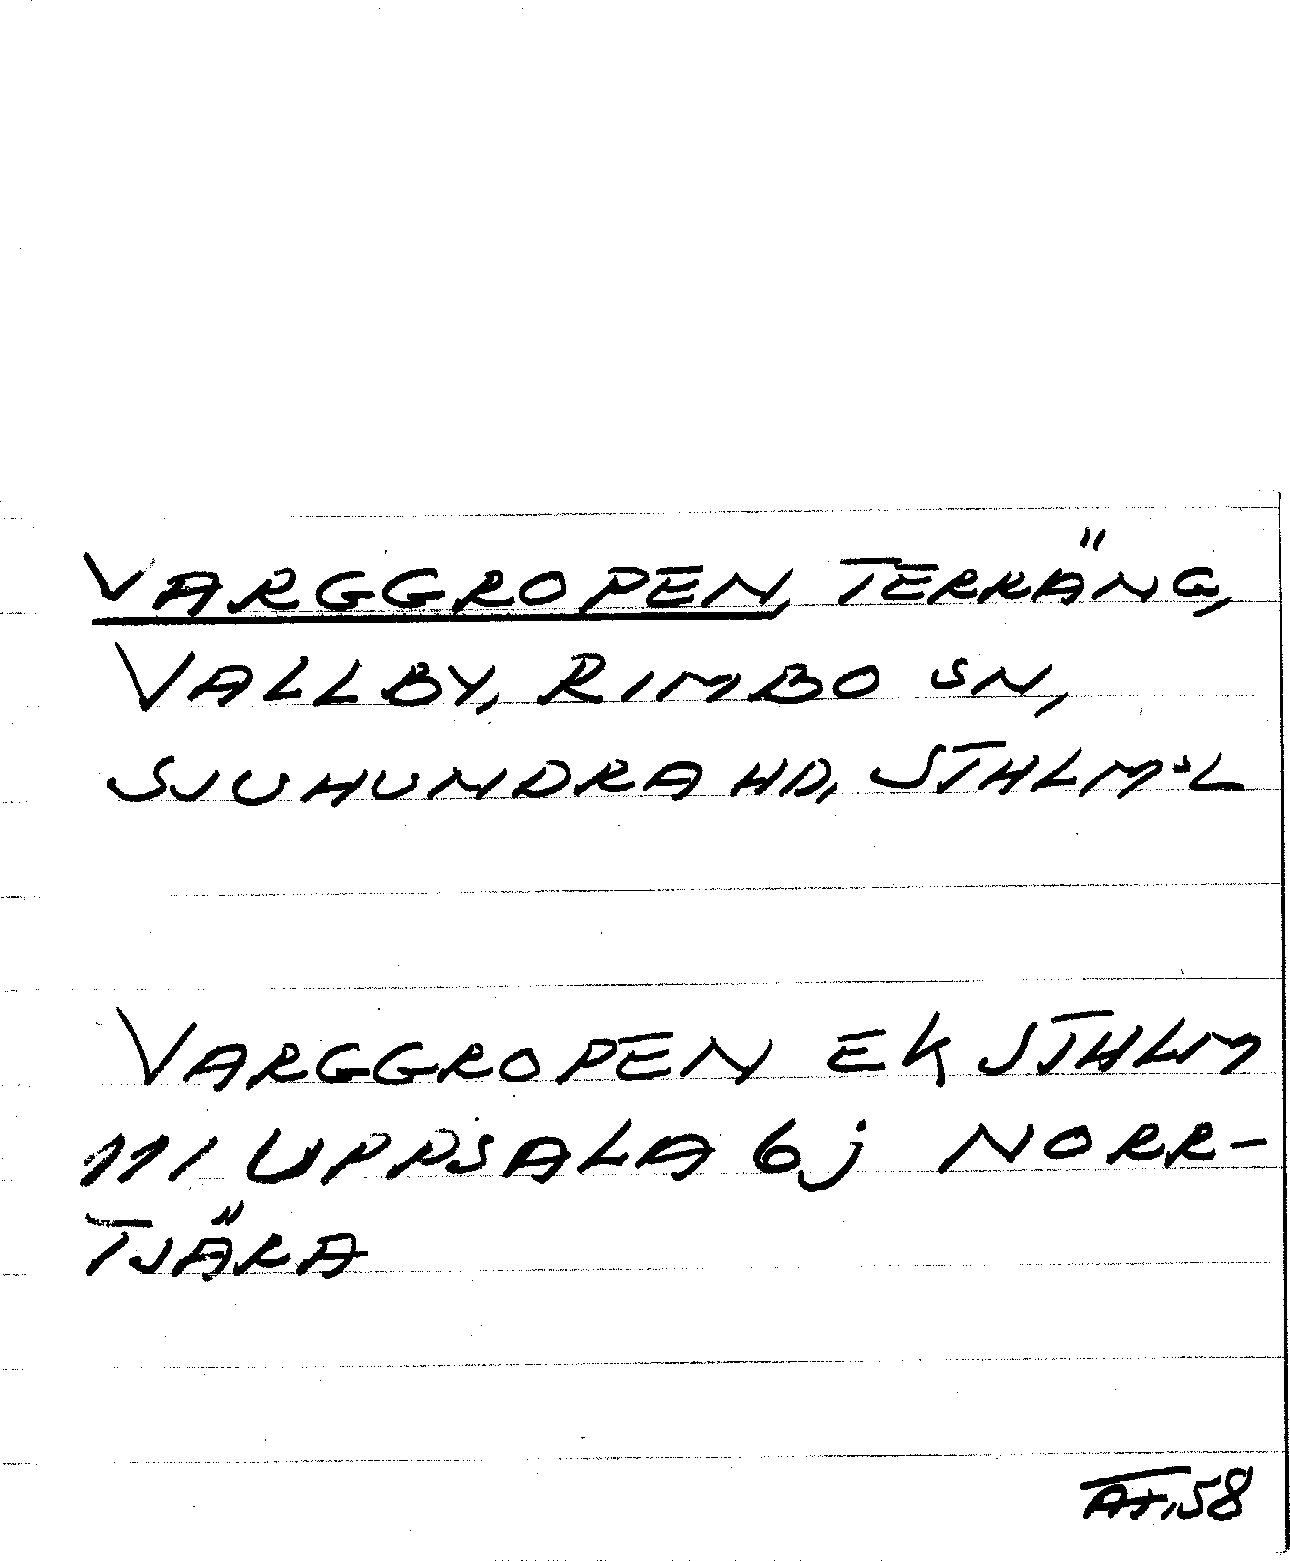 VARGGROPEN, TERRÄNG,
VALLBY, RIMBO SN,
SJUHUNDRA HD, STHLMSL
VARGGROPEN EK STHLM
111 UPPSALA 6j NORR-
TJÄRA
58